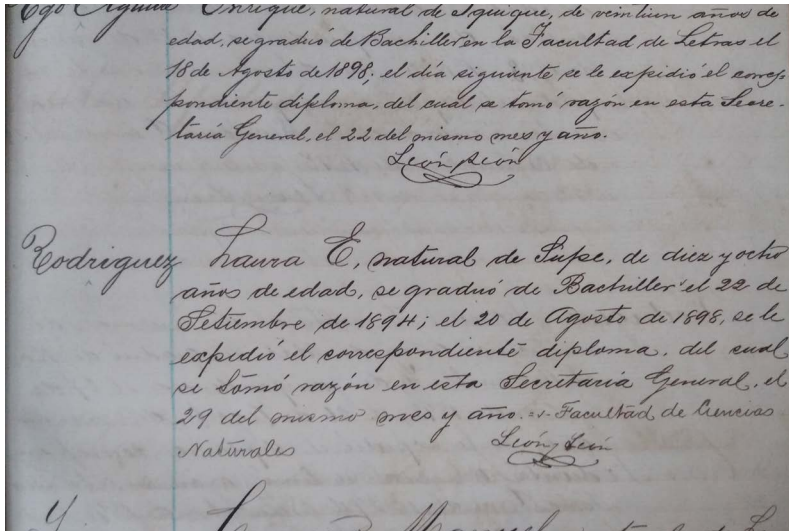 Enrique, natural de Iquique, de veintiun años de
edad, se graduó de Bachiller en la Facultad de Letras el
18 de Agosto de 1898; el día siguiente se le expidió el corres
pondiente diploma, del cual se tomó razón en esta Secre-
taría General, el 22 del mismo mes y año.
León y León
Rodriguez Laura E, natural de Supe, de diez y ocho
años de edad, se graduó de Bachiller el 22 de
Setiembre de 1894; el 20 de Agosto de 1898, se le
expidió el correspondiente diploma, del cual
se tomó razón en esta Secretaria General, el
29 del mismo mes y año. Facultad de Ciencias
Naturales León y León
Manuel